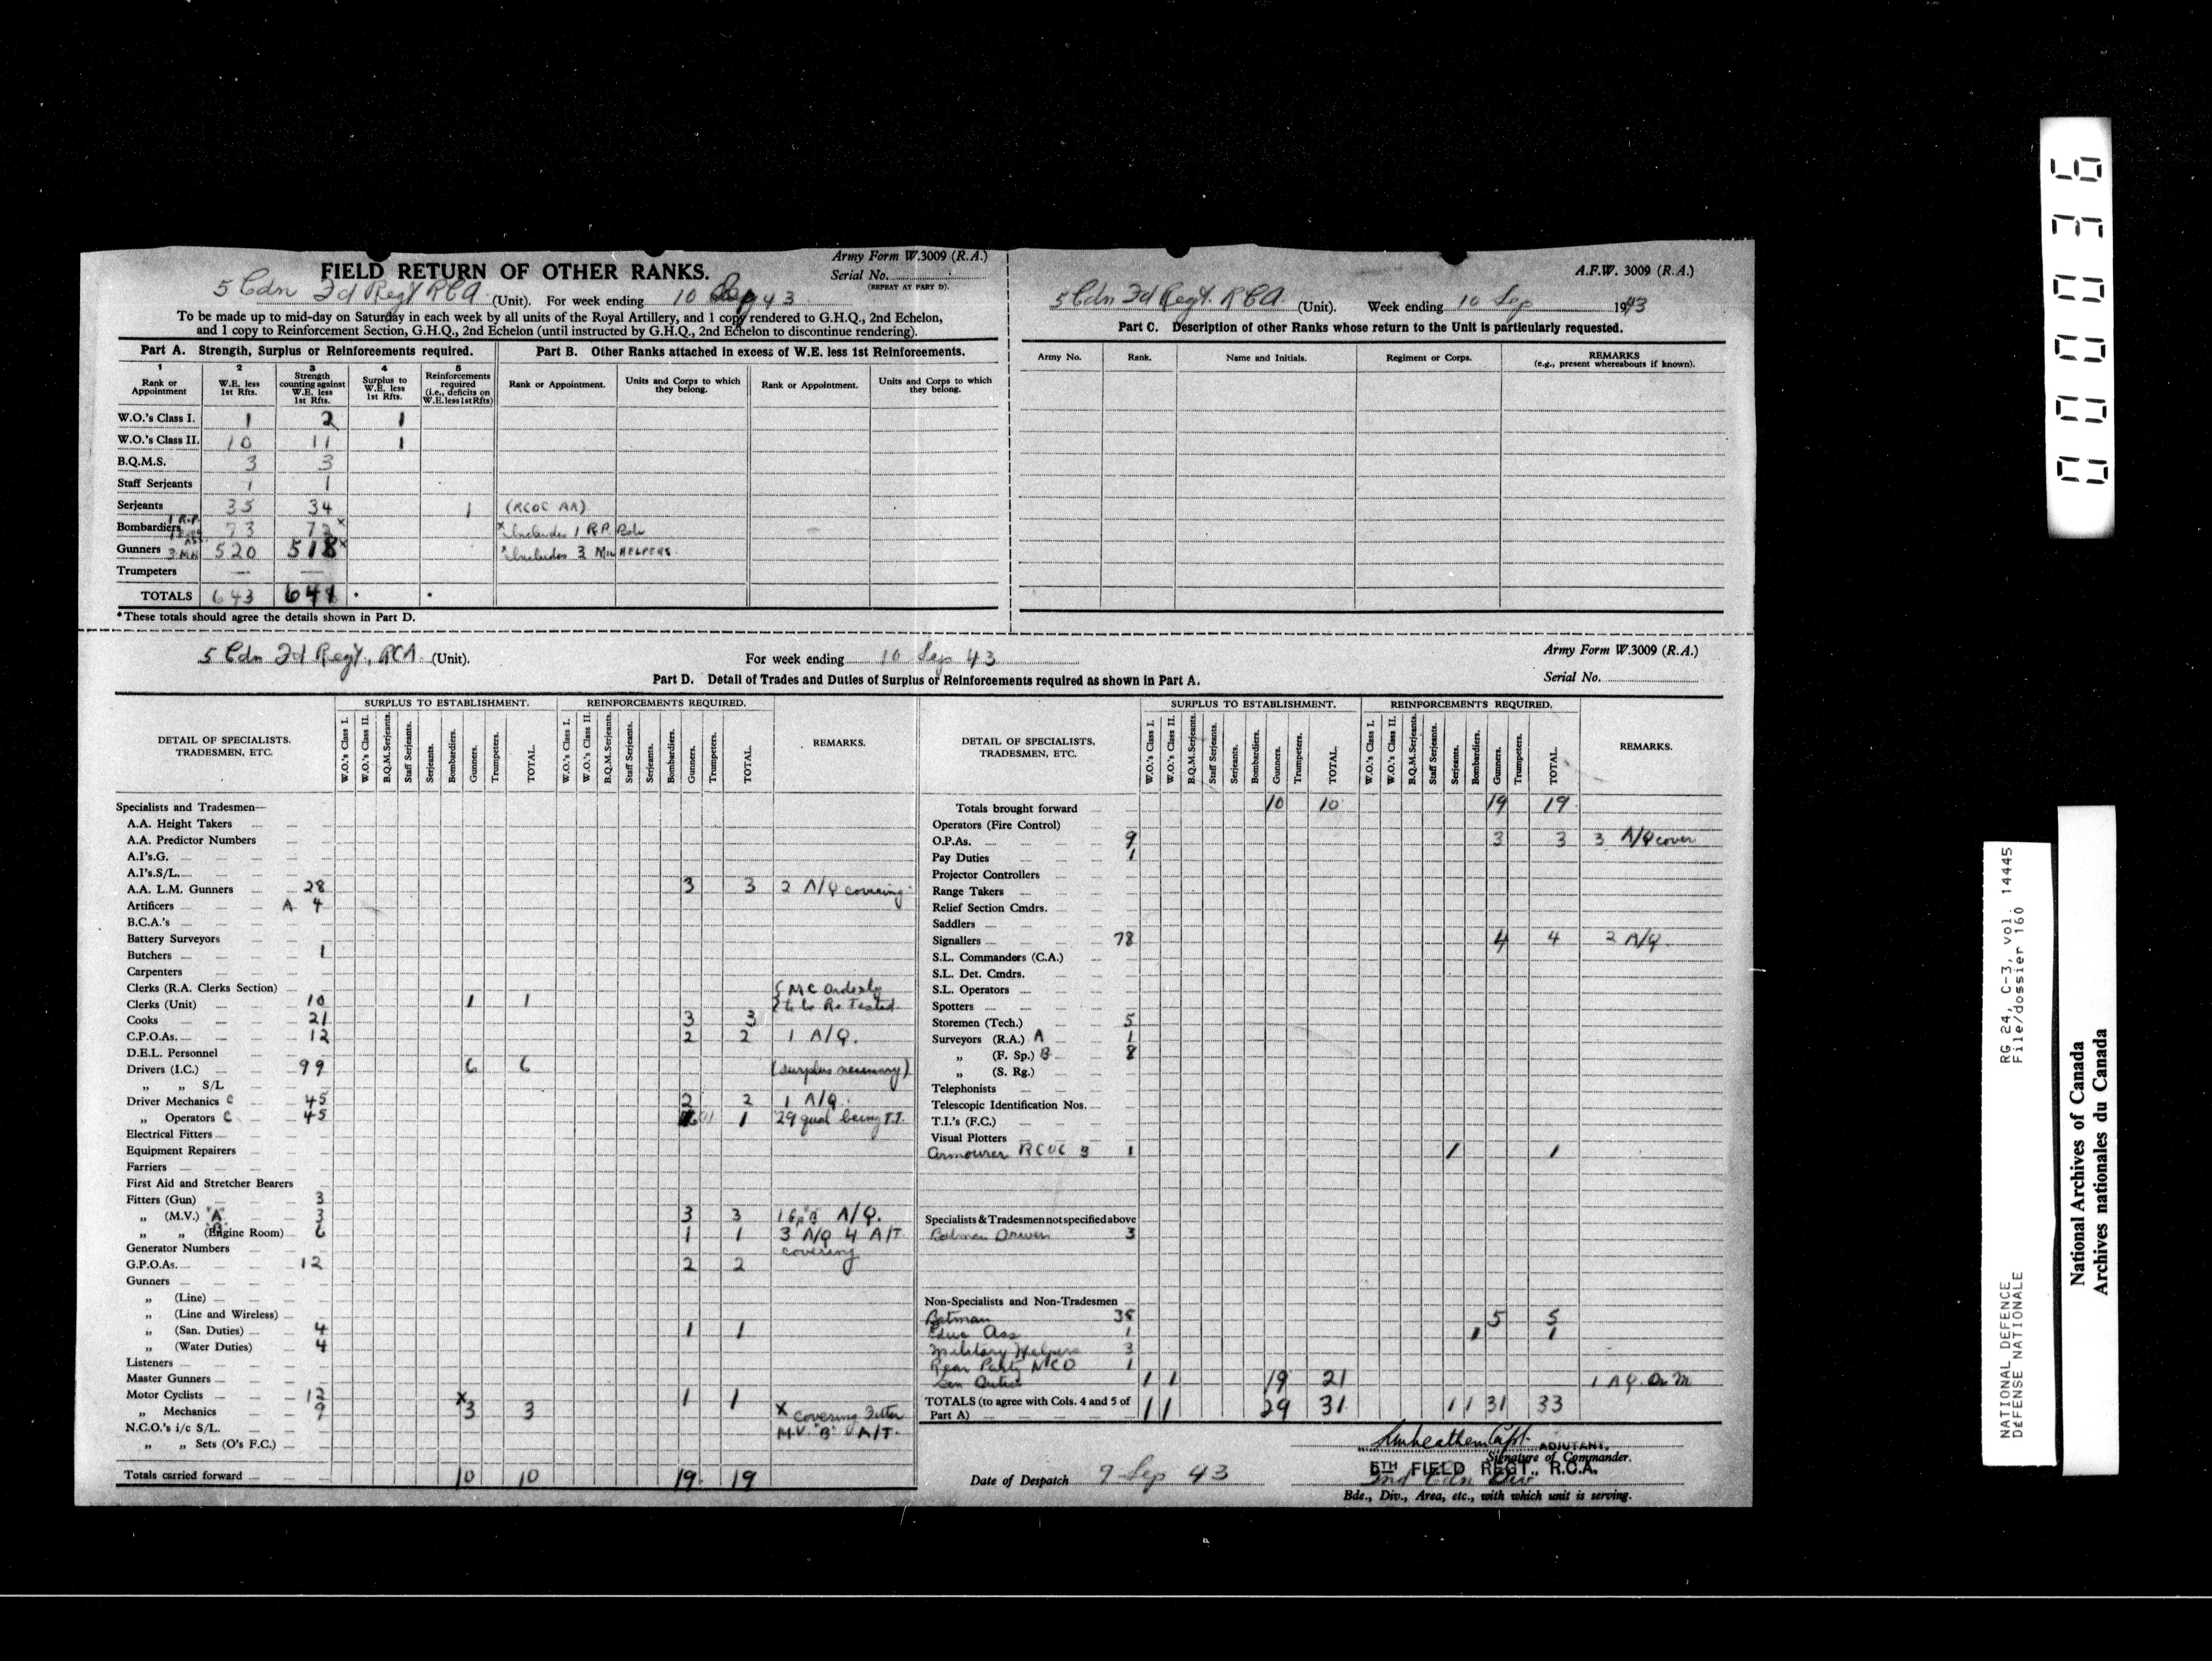 Army Form W.3009 (R.A.)
FIELD RETURN OF OTHER RANKS.
Serial No.
(REPEAT AT PART D).
5 Cdn Fd Regt RCA (Unit). For week ending 10 Sep 43
To be made up to mid-day on Saturday in each week by all units of the Royal Artillery, and 1 copy rendered to G.H.Q., 2nd Echelon,
and 1 copy to Reinforcement Section, G.H.Q., 2nd Echelon (until instructed by G.H.Q., 2nd Echelon to discontinue rendering).
Part A. Strength, Surplus or Reinforcements required.
Part B. Other Ranks attached in excess of W.E. less 1st Reinforcements.
1 2 3 4 5
Rank or Appointment
W.E. less 1st Rfts.
Strength counting against W.E. less 1st Rfts.
Surplus to W.E. less 1st Rfts.
Reinforcements required (i.e., deficits on W.E. less 1st Rfts)
Rank or Appointment.
Units and Corps to which they belong.
Rank or Appointment.
Units and Corps to which they belong.
W.O.'s Class I. 1 2 1
W.O.'s Class II. 10 11 1
B.Q.M.S. 3 3
Staff Serjeants 1 1
Serjeants 35 34 1 (RCOC AA)
Bombardiers 1 R.P. 73 72 x x Includes 1 R.P. Bdr
Gunners 3 MH 520 518 x x Includes 3 Mil HELPERS
Trumpeters — —
TOTALS 643 641 * *
*These totals should agree the details shown in Part D.
A.F.W. 3009 (R.A.)
5 Cdn Fd Regt. RCA (Unit). Week ending 10 Sep 1943
Part C. Description of other Ranks whose return to the Unit is particularly requested.
Army No. Rank. Name and Initials. Regiment or Corps. REMARKS
(e.g., present whereabouts if known).
5 Cdn Fd Regt, RCA. (Unit). For week ending 10 Sep 43
Army Form W.3009 (R.A.)
Serial No.
Part D. Detail of Trades and Duties of Surplus or Reinforcements required as shown in Part A.
DETAIL OF SPECIALISTS, TRADESMEN, ETC.
SURPLUS TO ESTABLISHMENT.
REINFORCEMENTS REQUIRED.
REMARKS.
W.O.'s Class I. W.O.'s Class II. B.Q.M.Serjeants. Staff Serjeants. Serjeants. Bombardiers. Gunners. Trumpeters. TOTAL.
W.O.'s Class I. W.O.'s Class II. B.Q.M.Serjeants. Staff Serjeants. Serjeants. Bombardiers. Gunners. Trumpeters. TOTAL.
Specialists and Tradesmen—
A.A. Height Takers
A.A. Predictor Numbers
A.I's.G.
A.I's.S/L.
A.A. L.M. Gunners 28 3 3 2 A/Q covering
Artificers A 4
B.C.A.'s
Battery Surveyors
Butchers 1
Carpenters
Clerks (R.A. Clerks Section) { MC Orderly
Clerks (Unit) 10 1 1 } to be Re Tested
Cooks 21 3 3
C.P.O.As. 12 2 2 1 A/Q.
D.E.L. Personnel
Drivers (I.C.) 99 6 6 (surplus necessary)
„ „ S/L
Driver Mechanics C 45 2 2 1 A/Q.
„ Operators C 45 1 29 qual being T.T.
Electrical Fitters
Equipment Repairers
Farriers
First Aid and Stretcher Bearers
Fitters (Gun) 3
„ (M.V.) "A" 3 3 3 1 Gp "B" A/Q.
„ „ (Engine Room) "B" 6 1 1 3 A/Q 4 A/T
Generator Numbers covering
G.P.O.As. 12 2 2
Gunners
„ (Line)
„ (Line and Wireless)
„ (San. Duties) 4 1 1
„ (Water Duties) 4
Listeners
Master Gunners
Motor Cyclists 12 1 1
„ Mechanics 9 x3 3 x covering Fitter
N.C.O.'s i/c S/L. M.V. "B" A/T.
„ „ Sets (O's F.C.)
Totals carried forward 10 10 19 19
DETAIL OF SPECIALISTS, TRADESMEN, ETC.
SURPLUS TO ESTABLISHMENT.
REINFORCEMENTS REQUIRED.
REMARKS.
W.O.'s Class I. W.O.'s Class II. B.Q.M.Serjeants. Staff Serjeants. Serjeants. Bombardiers. Gunners. Trumpeters. TOTAL.
W.O.'s Class I. W.O.'s Class II. B.Q.M.Serjeants. Staff Serjeants. Serjeants. Bombardiers. Gunners. Trumpeters. TOTAL.
Totals brought forward 10 10 19 19
Operators (Fire Control)
O.P.As. 9 3 3 3 A/Q cover
Pay Duties 1
Projector Controllers
Range Takers
Relief Section Cmdrs.
Saddlers
Signallers 78 4 4 2 A/Q.
S.L. Commanders (C.A.)
S.L. Det. Cmdrs.
S.L. Operators
Spotters
Storemen (Tech.) 5
Surveyors (R.A.) A 1
„ (F. Sp.) B 8
„ (S. Rg.)
Telephonists
Telescopic Identification Nos.
T.I.'s (F.C.)
Visual Plotters
Armourer RCOC B 1 1 1
Specialists & Tradesmen not specified above
Batman Drivers 3
Non-Specialists and Non-Tradesmen
Batman 35 5 5
Educ Ass 1 1 1
Military Helpers 3
Rear Party NCO 1
Gen Duties 1 1 19 21 1 A.Q. Dr M
TOTALS (to agree with Cols. 4 and 5 of Part A) 1 1 29 31 1 1 31 33
Capt. ADJUTANT.
Signature of Commander.
5TH FIELD REGT., R.C.A.
2nd Cdn Div
Date of Despatch 9 Sep 43
Bde., Div., Area, etc., with which unit is serving.
000036
NATIONAL DEFENCE RG 24, C-3, vol. 14445
DÉFENSE NATIONALE File/dossier 160
National Archives of Canada
Archives nationales du Canada